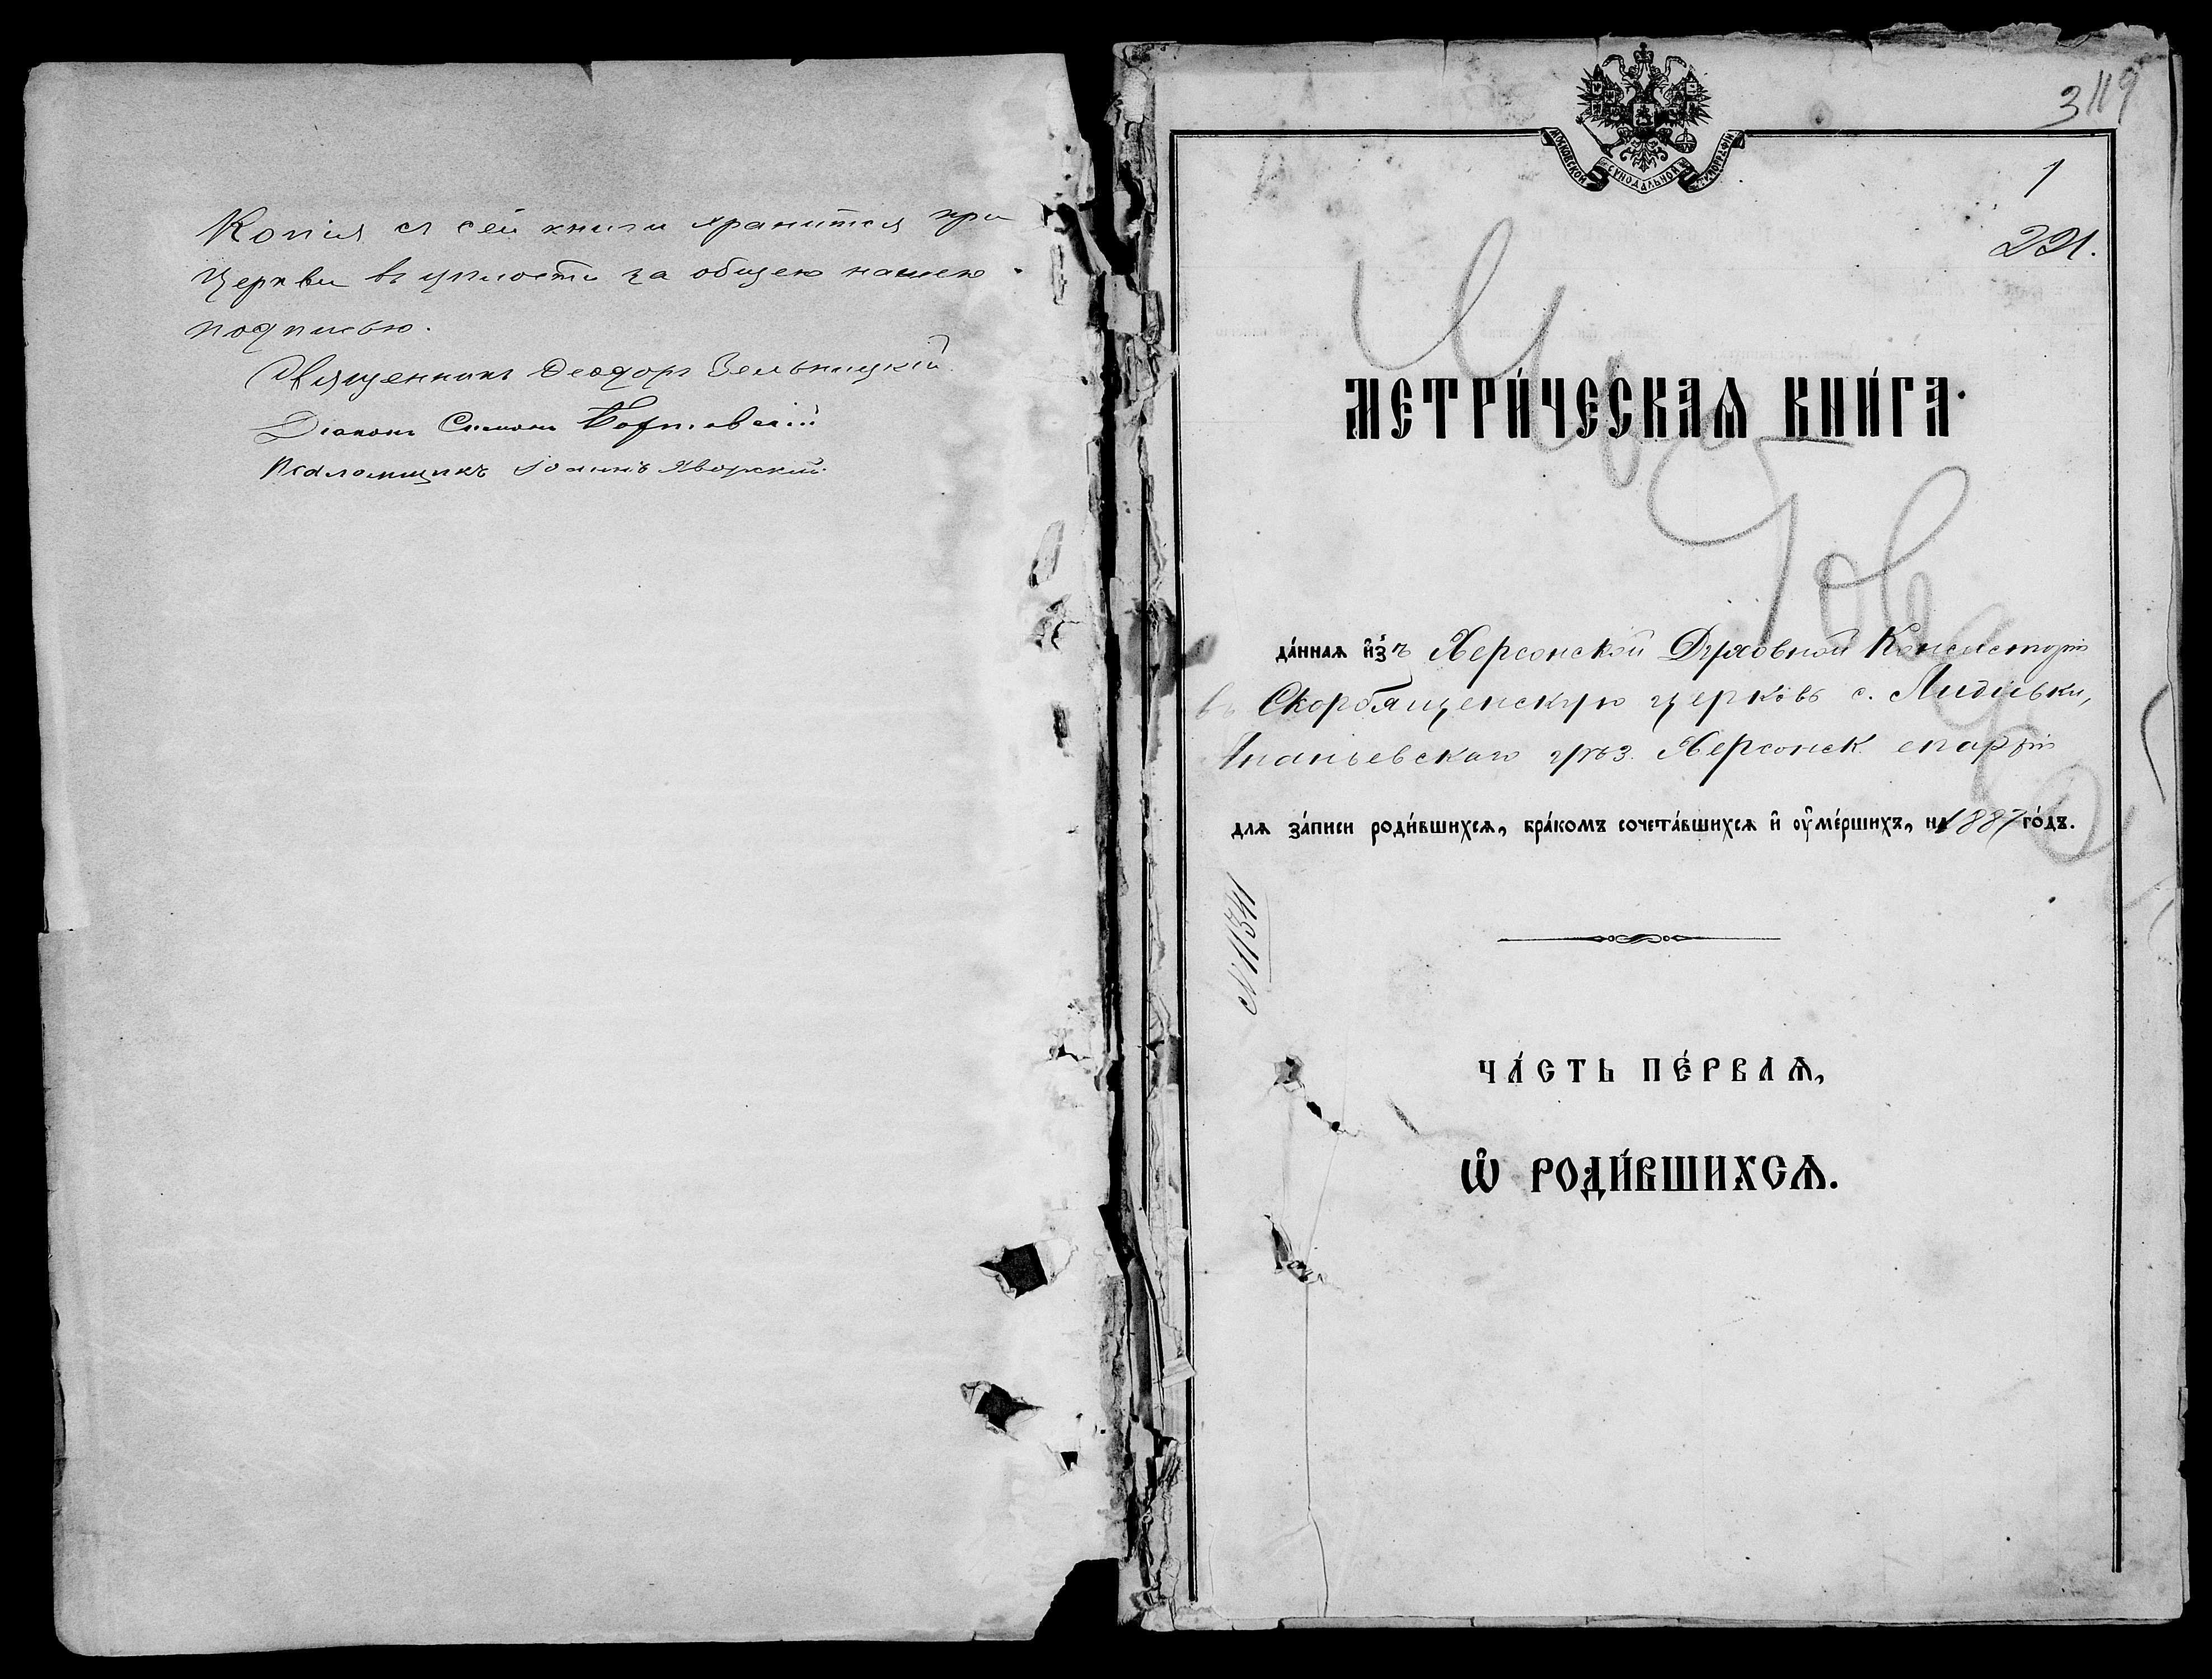 Копія съ сей книги хранится при
церкви въ цѣлости за общею нашею
подписью.
Священникъ Ѳеодоръ Зельницкій
Діаконъ Симонъ
Псаломщикъ Іоаннъ Яворскій.
МОСКОВСКОЙ СѴНОДАЛЬНОЙ ТИПОГРАФІИ
3119
1
221.
МЕТРИ́ЧЕСКАѦ КНИ́ГА
да́ннаѧ и҆зъ Херсонской Духовной Консисторіи
въ Скорбященскую церковь с. Лидіевки,
Ананьевскаго уѣз. Херсонск. епархіи
длѧ за́писи роди́вшихсѧ, бра́комъ сочета́вшихсѧ и҆ ᲂу҆ме́ршихъ, на 1887 го́дъ.
№ 11341
ЧА́СТЬ ПЕ́РВАѦ,
Ѡ҆ РОДИ́ВШИХСѦ.